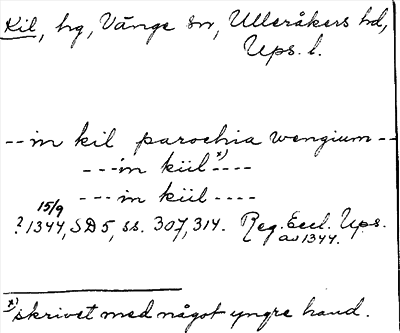 Kil, hg, Vänge sn, Ulleråkers hd,
Ups. l.
-- in kil parochia wengium --
--- in kiil x) ----
--- in kiil ----
15/9
? 1344, SD 5, ss. 307, 314. Reg. Eccl. Ups.
av 1344.
x) skrivet med något yngre hand.